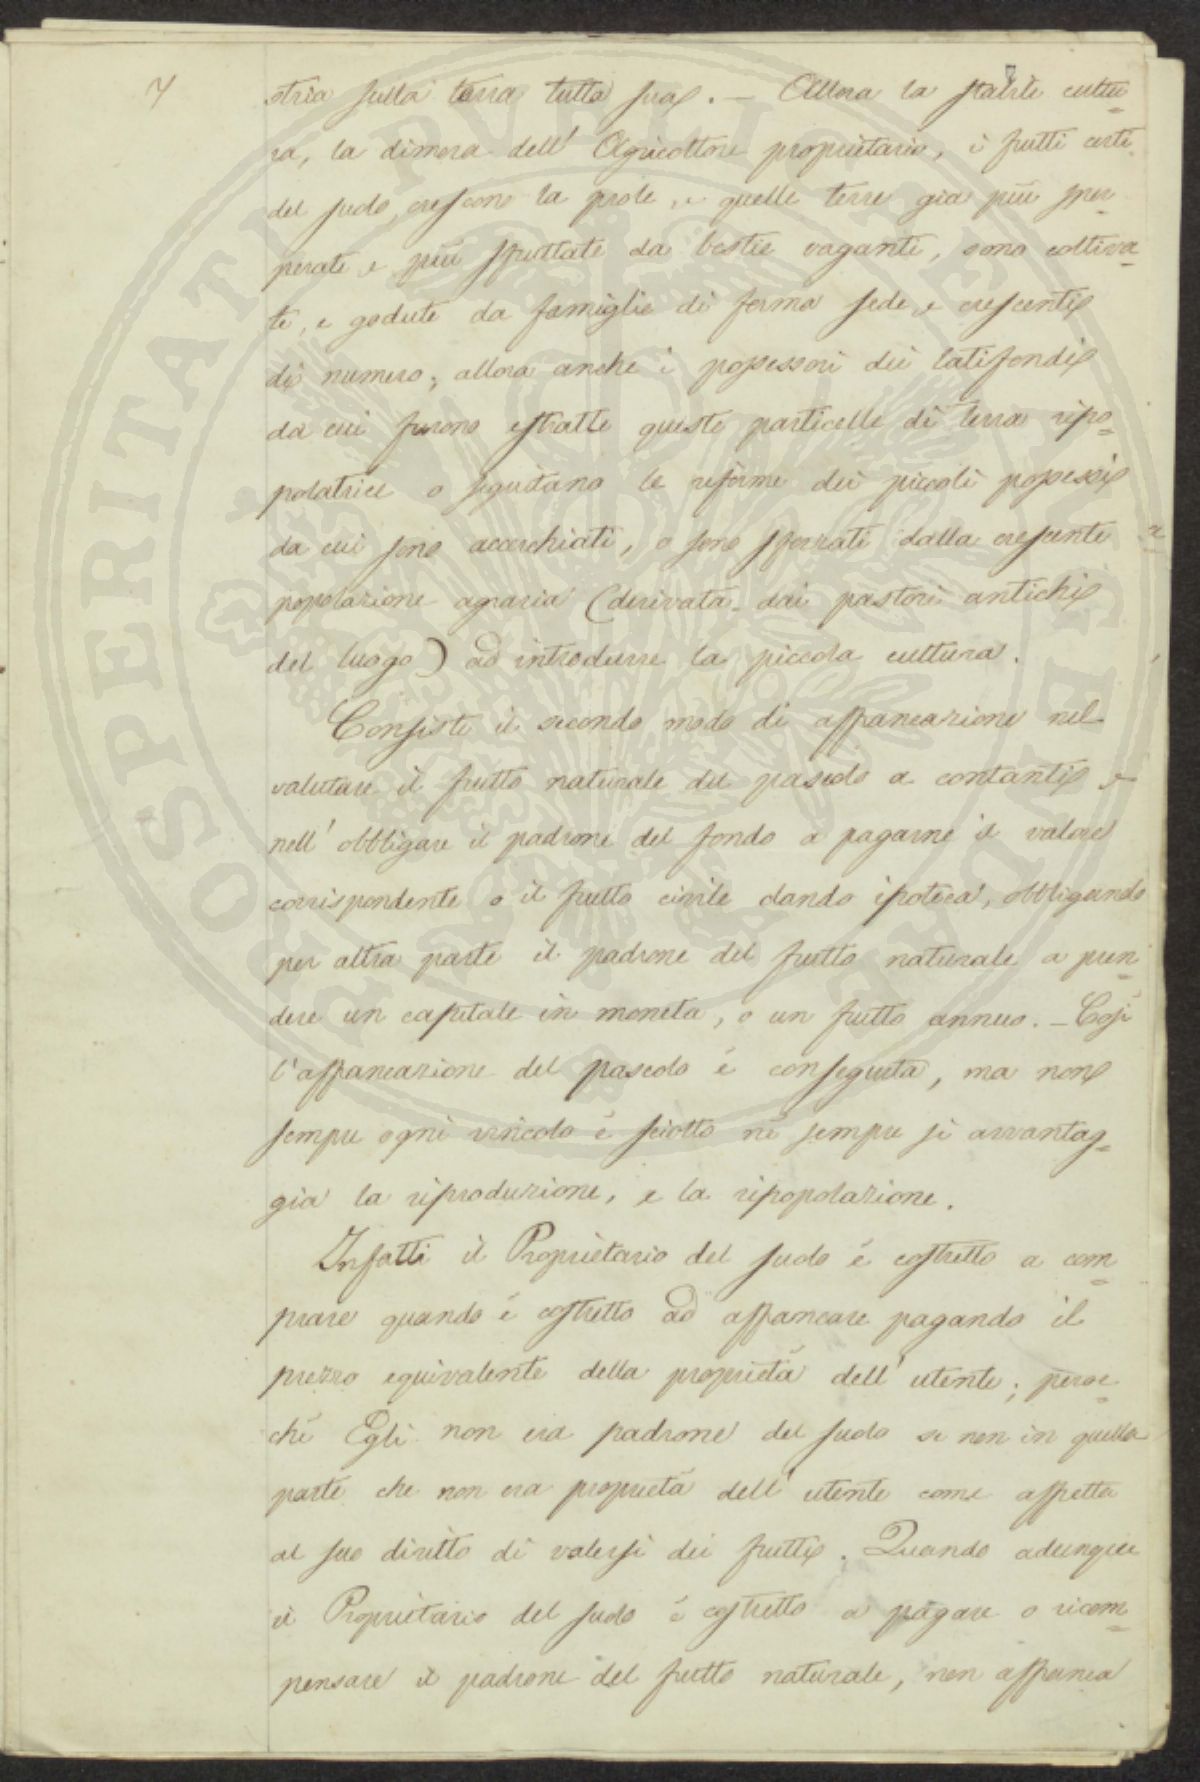 7
stria sulla terra tutta sua. — Allora la stabile cultu=
ra, la dimora dell' Agricoltore proprietario, i frutti certi
del suolo, crescono la prole, e quelle terre gia più sper=
perate e più sfruttate da bestie vaganti, sono coltiva=
te, e godute da famiglie di ferma sede, e crescenti
di numero; allora anche i possessori dei latifondi
da cui furono estratte queste particelle di terra ripo=
polatrice o seguitano le riforme dei piccoli possessi
da cui sono accerchiati, o sono sforzati dalla crescente
popolazione agraria (derivata dai pastori antichi
del luogo) ad introdurre la piccola cultura.
Consiste il secondo modo di affrancazione nel
valutare il frutto naturale del pascolo a contanti e
nell' obbligare il padrone del fondo a pagarne il valore
corrispondente o il frutto civile dando ipoteca, obbligando
per altra parte il padrone del frutto naturale a pren=
dere un capitale in moneta, o un frutto annuo. — Così
l'affrancazione del pascolo é conseguita, ma non
sempre ogni vincolo é sciolto né sempre si avvantag=
gia la riproduzione, e la ripopolazione.
Infatti il Proprietario del suolo é costretto a com=
prare quando é costretto ad affrancare pagando il
prezzo equivalente della proprietà dell' utente; peroc=
ché Egli non era padrone del suolo se non in quella
parte che non era proprietà dell' utente come aspetta
al suo diritto di valersi dei frutti. Quando adunque
il Proprietario del suolo é costretto a pagare o ricom=
pensare il padrone del frutto naturale, non affranca
PROSPERITATI PVBLICAE